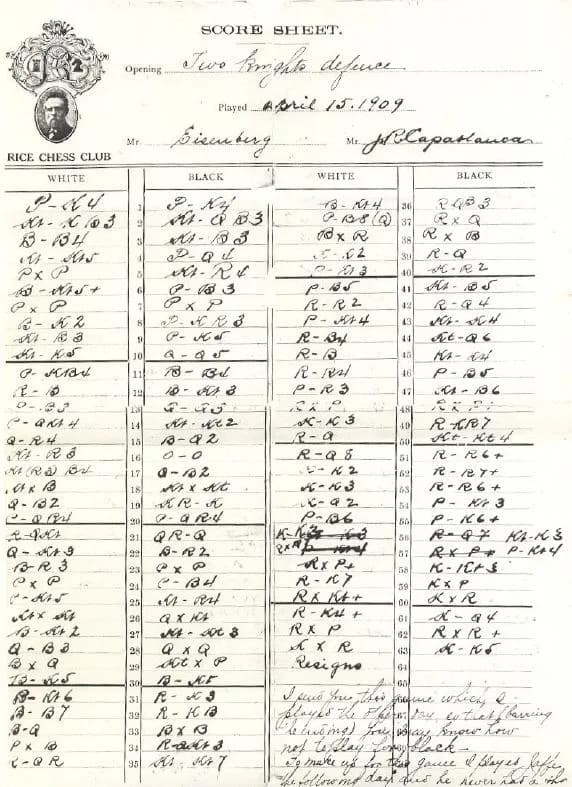 SCORE SHEET.
Opening Two Knights defence
Played April 15. 1909
Mr. Eisenberg Mr. J R Capablanca
RICE CHESS CLUB
WHITE BLACK WHITE BLACK
P-K4 1 P-K4
Kt-KB3 2 Kt-QB3
B-B4 3 Kt-B3
Kt-Kt5 4 P-Q4
PxP 5 Kt-R4
B-Kt5+ 6 P-B3
PxP 7 PxP
B-K2 8 P-KR3
Kt-B3 9 P-K5
Kt-K5 10 Q-Q5
P-KB4 11 B-B4
R-B 12 B-Kt3
P-B3 13
P-QKt4 14 Kt-Kt2
Q-R4 15 B-Q2
Kt-R3 16 O-O
Kt(R3)B4 17 Q-B2
KtxB 18 KtxKt
Q-B2 19 KR-K
P-QR4 20 P-QR4
R-QKt 21 QR-Q
Q-Kt3 22 B-R2
B-R3 23 PxP
PxP 24 P-B4
P-Kt5 25 Kt-R4
KtxKt 26 QxKt
B-Kt2 27 Kt-Kt3
Q-B3 28 QxQ
BxQ 29 KtxP
B-K5 30 B-Kt
B-Kt6 31 R-K3
B-B7 32 R-KB
B-Q 33 BxB
PxB 34 R-Kt3
R-QR 35 Kt-Kt7
B-Kt4 36 R-QB3
P-B8(Q) 37 RxQ
BxR 38 RxB
K-K2 39 R-Q
P-Kt3 40 K-R2
P-B5 41 Kt-B5
R-R2 42 R-Q4
P-Kt4 43 Kt-K4
R-B4 44 Kt-Q6
R-B 45 Kt-K4
R-R4 46 P-B5
P-R3 47 Kt-B6
RxP 48 RxP+
K-K3 49 R-KR7
R-Q 50 Kt-Kt4
R-Q8 51 R-R6+
K-K2 52 R-R7+
K-K3 53 R-R6+
K-Q2 54 P-Kt3
P-B6 55 P-K6+
K-K2 56 R-Q7 Kt-K3
RxR 57 RxP+ P-Kt4
RxP+ 58 K-Kt3
R-K7 59 KxP
RxKt+ 60 KxR
R-K4+ 61 K-Q4
RxP 62 RxR+
KxR 63 K-K5
Resigns 64
65
I send you this game which I
played the other day, so that (barring
) you may know how
not to play for black-
To make up for this game I played Jaffe
the following day and he never had a